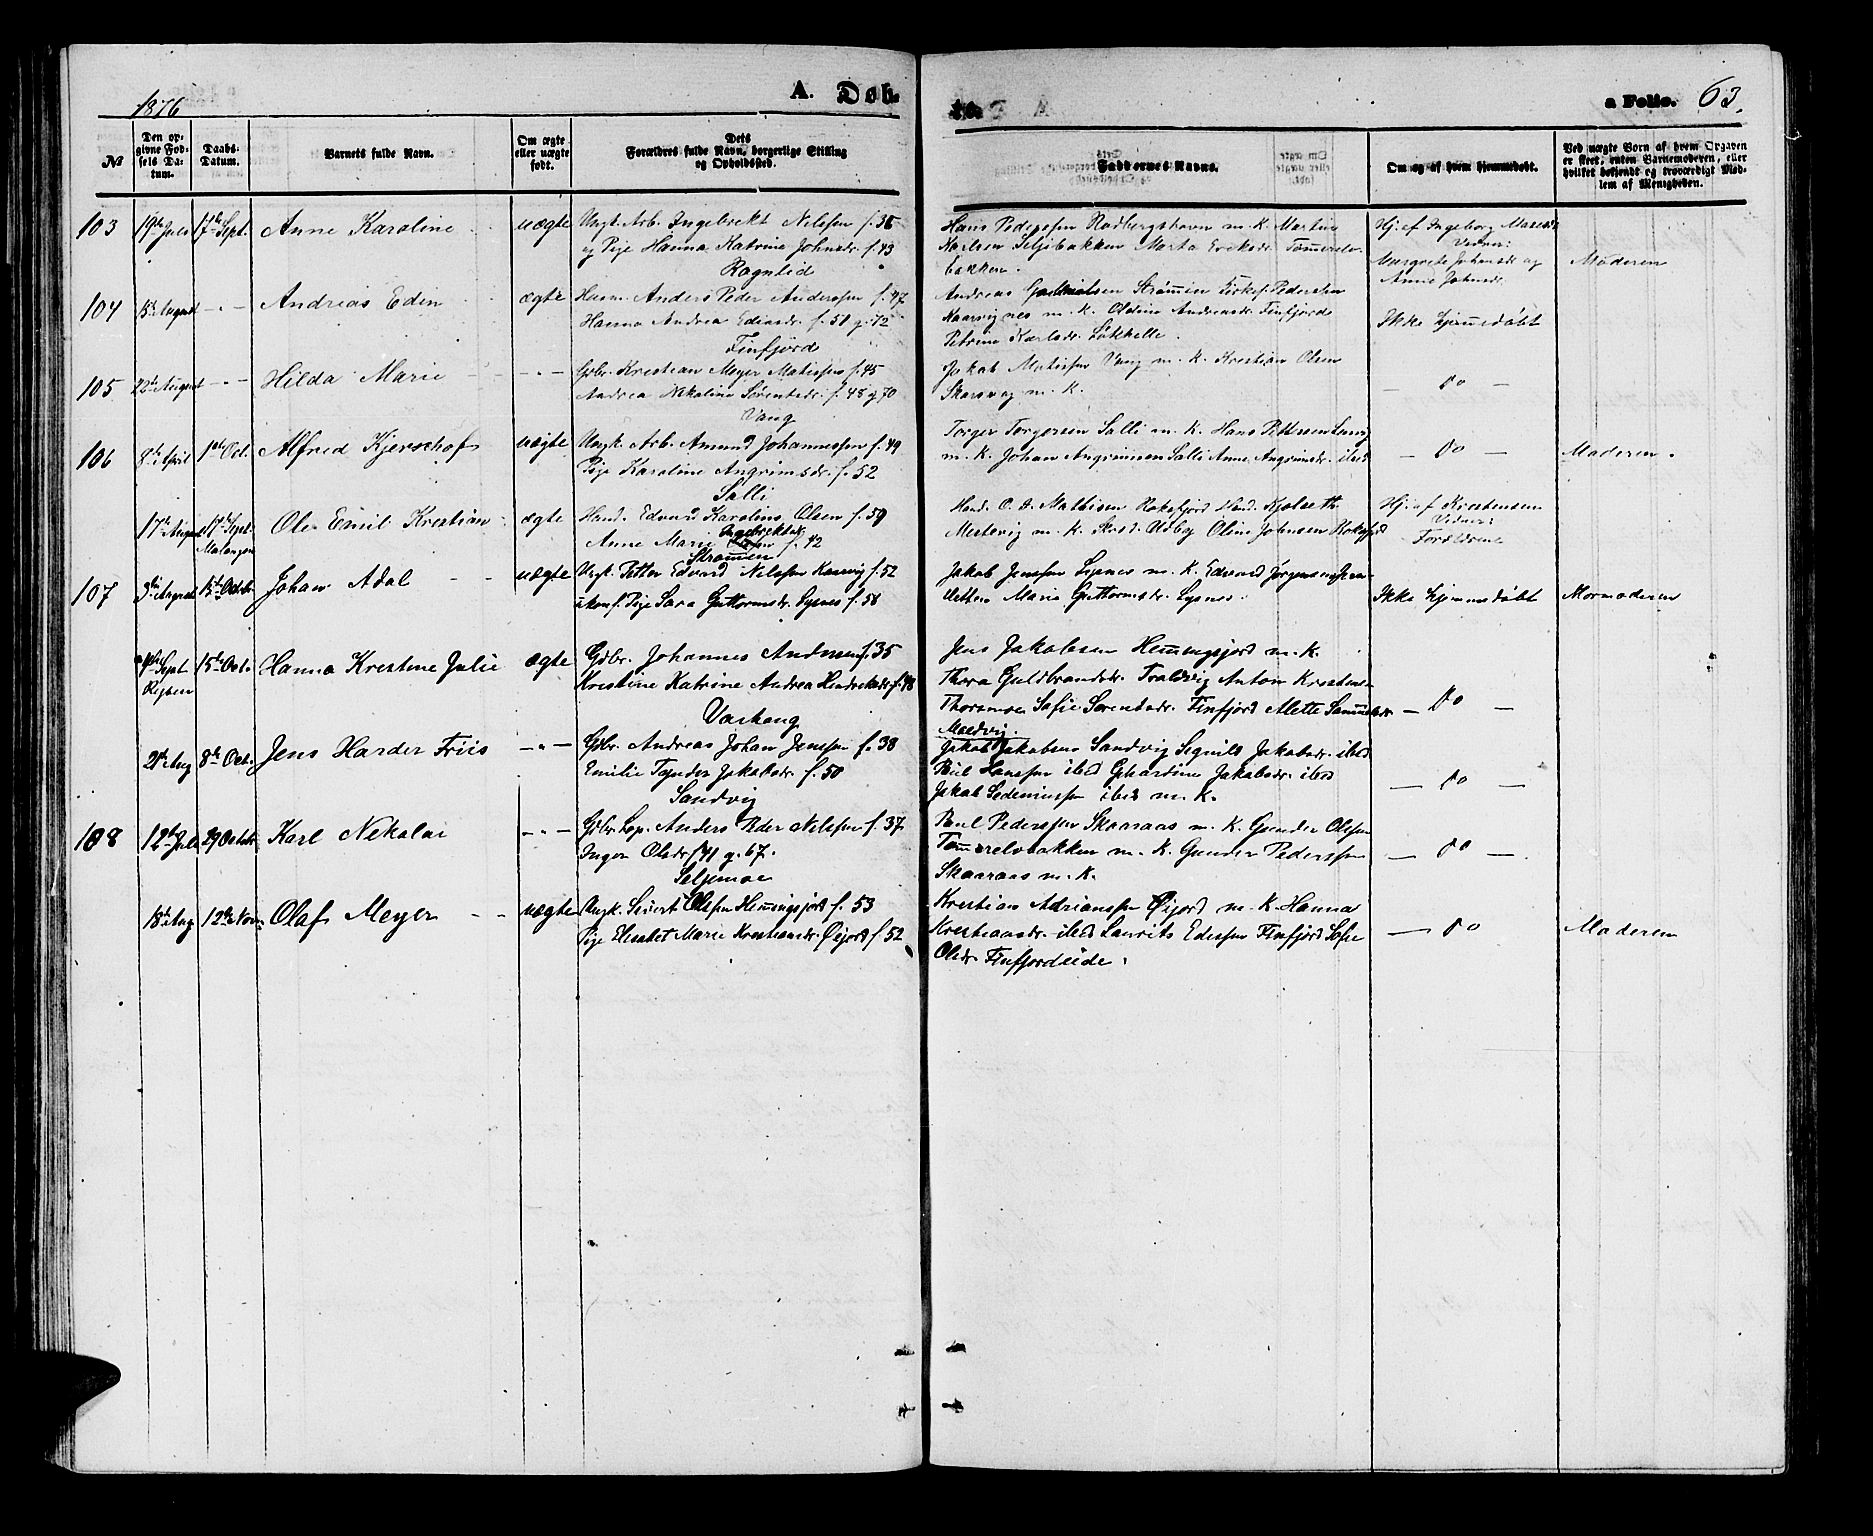 1876
A. Døb-
te.
a Folio. 63.
№
Den opgivne Fødsels Datum.
Daabs-Datum.
Barnets fulde Navn.
Om ægte eller uægte født.
Dets Forældres fulde Navn, borgerlige Stilling og Opholdssted.
Faddernes Navne.
Om og af hvem hjemmedøbt.
Ved uægte Børn af hvem Opgaven er skeet, enten Barnemoderen, eller hvilket bekjendt og troværdigt Medlem af Menigheden.
103 19de Juli 17de Sept. Anne Karoline uægte
Ungk. Arb. Ingebrekt Nilssen f. 36
og Pige Hanna Katrine Johnsdr. f. 43
Hans Pederssen Rodbergshavn m. K. Martin
Karlsen Seljebakken Marta Eriksdr. Tømmerelv-
bakken.
Hj. af Ingeborg
Vidner:
Margrete Johnsdr og
Anne Johnsdr.
Moderen
104 15de August - " - Andreas Edin ægte
Husm. Anders Peder Anderssen f. 47
Hanna Andrea Edinsdr. f. 51 g. 72
Finfjord
Andreas Strømmen Pederssen
m. K. Oldine Andreasdr. Finfjord
Petrine Karlsdr.
Ikke hjemmedøbt
105 22de August - " - Hilda Marie - " -
Gbr. Krestian Meyer Matissen f. 45
Andrea Nikoline Sørensdr. f. 48 g. 70
Vang
Jakob Matissen Vang m. K. Krestian Olsen
Skarsvag m. K.
— do —
106 8de April 1ste Oct. Alfred Kjerschof uægte
Ungk. Arb. Amund Johannessen f. 49
Pige Karoline Angrimsdr. f. 52
Salli
Torger Torgersen Salli m. K. Hans
m. K. Johan Angrimsen Salli Anne Angrimsdr. ibid
— do —
Moderen.
17de August 17de Sept. Malangen Ole Emil Krestian ægte
Hand. Edvard Karolius Olsen f. 50
Anne Marie Ingebrektsdr. f. 42
Strømmen
Hand. O. J. Mathisen Roksfjord Hand.
Mestervig m. K. Oline Johnsen
Hj. af
Vidner:
Forældrene
107 3die August 15de Octbr. Johan Adal uægte
Ungk. Petter Edvard Nilssen f. 52
ukonf. Pige Sara Guttormsdr. Lysnes f. 58
Jakob Jenssen Lysnes m. K. Edvard Jørgensen
Maria Guttormsdr. Lysnes.
Ikke hjemmedøbt
Mormoderen
Sept 15de Oct. Hanna Krestine Julie ægte
Gbr. Johannes Andersen f. 35
Kristine Katrine Andrea Hendriksdr. f. 48
Jens Jakobsen Hemmingsjord m. K.
Thora Guldbrandsdr. Anton Krestensen
Sofie Sørensdr. Finfjord Alette Samuelsdr.
— do —
21de Aug 8de Oct. Jens Harder Friis - " -
Gbr. Andreas Johan Jenssen f. 38
Emilie Tønder Jakobsdr. f. 50
Sandvig
Jakob Jakobsen Sandvig Segnild Jakobsdr. ibid
Paul Hanssen ibid Jakobsdr. ibid
Jakob ibid m. K.
— do —
108 12te Juli 29 Octobr. Karl Nekolai - " -
Gbr. Lap. Anders Peder Nilssen f. 37
Inger Olsdr. f 41 g. 67.
Seljemoe
Paul Pederssen Skaaraas m. K. Gunder Olssen
Tømmerelvbakken m. K. Gunder Pederssen
Skaaraas m. K.
— do —
18de Aug 12te Nov. Olaf Meyer uægte
Ungk. Sivert Olssen Hemmingsjord f. 53
Pige Elisabet Marie Krestiansdr. Øijord f. 52
Krestian Adrianssen Øijord m. K. Hanna
Krestiansdr. ibid Laurits Edissen Finfjord Sofie
Olsdr. Finfjordeide.
— do —
Moderen